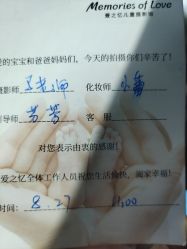 Memories of Love
爱之忆儿童摄影馆
的宝宝和爸爸妈妈们，今天的拍摄你们辛苦了！
影师 王老师 化妆师 小雪
导师 芳芳 客 服
对您表示由衷的感谢！
爱之忆全体工作人员祝您生活愉快，阖家幸福！
时间： 8.27 11:00